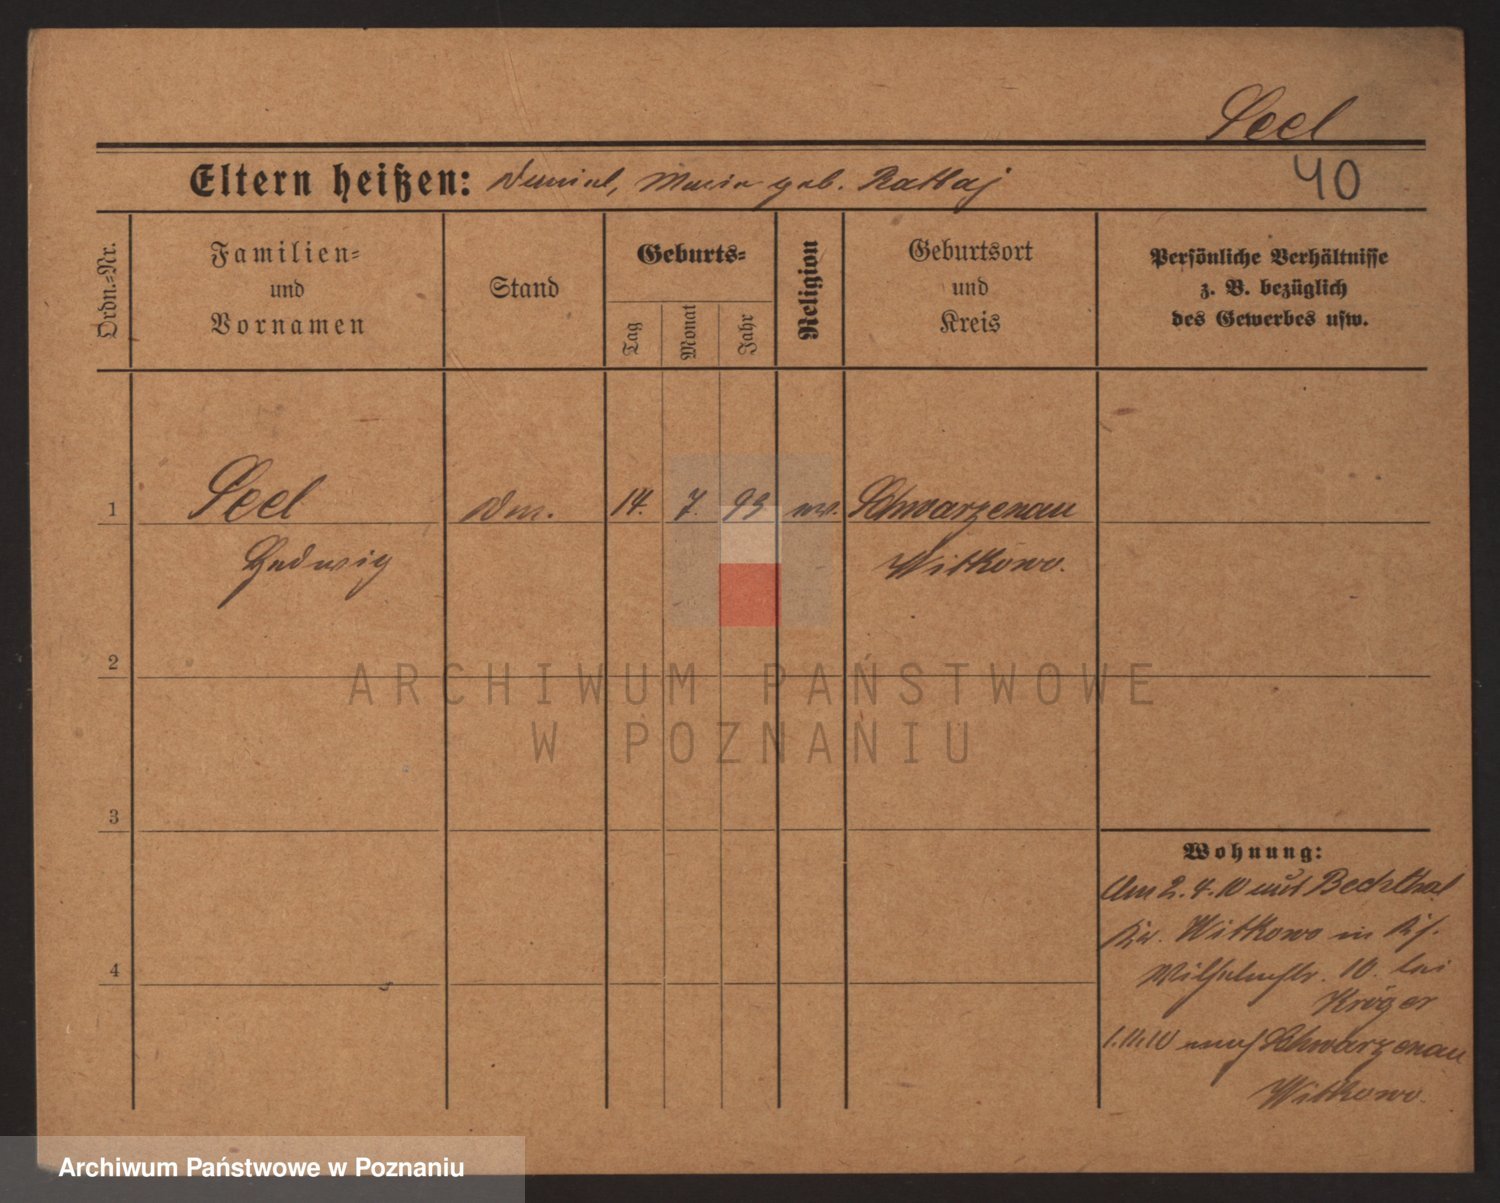 Seel
Eltern heißen: Daniel, Maria geb. Rattaj
40
Ordn.-Nr.
Familien-
und
Vornamen
Stand
Geburts-
Tag
Monat
Jahr
Religion
Geburtsort
und
Kreis
Persönliche Verhältnisse
z. B. bezüglich
des Gewerbes usw.
1 Seel 14. 7. 93 Schwarzenau
Hedwig Witkowo.
2
3
4
Wohnung:
Am 2.4.10 aus
Witkowo in
Wilhelmstr. 10. bei
Kröger
nach Schwarzenau
Witkowo.
ARCHIWUM PAŃSTWOWE
W POZNANIU
Archiwum Państwowe w Poznaniu